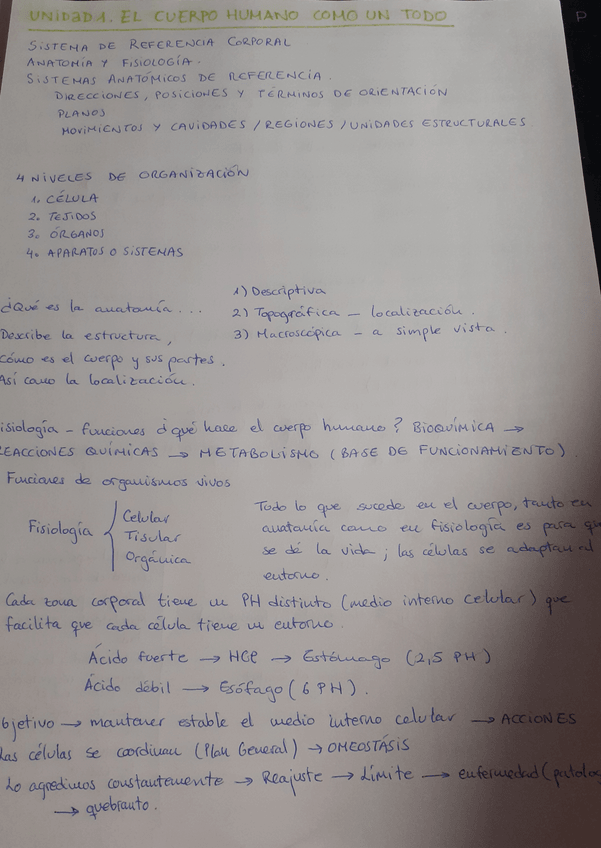 UNIDAD 1. EL CUERPO HUMANO COMO UN TODO
SISTEMA DE REFERENCIA CORPORAL
ANATOMIA Y FISIOLOGÍA.
SISTEMAS ANATÓMICOS DE REFERENCIA.
DIRECCIONES, POSICIONES Y TÉRMINOS DE ORIENTACIÓN
PLANOS
MOVIMIENTOS Y CAVIDADES / REGIONES / UNIDADES ESTRUCTURALES
4 NIVELES DE ORGANIZACIÓN
1. CÉLULA
2. TEJIDOS
3. ÓRGANOS
4. APARATOS O SISTEMAS
¿Qué es la anatamía...
Describe la estructura,
cómo es el cuerpo y sus partes.
Así como la localización.
1) Descriptiva
2) Topográfica - localización.
3) Macroscópica - a simple vista.
isiología - funciones ¿qué hace el cuerpo humano? BIOQUÍMICA →
EACCIONES QUÍMICAS → METABOLISMO (BASE DE FUNCIONAMIENTO).
Funciones de organismos vivos
Fisiología { Celular
Tisular
Orgánica
Todo lo que sucede en el cuerpo, tanto en
anatamía como en fisiología es para qu
se dé la vida; las células se adaptan al
entorno.
Cada zona corporal tiene un PH distinto (medio interno celular) que
facilita que cada célula tiene un entorno.
Ácido fuerte → HCP → Estómago (2,5 PH)
Ácido débil → Esófago (6 PH).
bjetivo → mantener estable el medio interno celular → ACCIONES
Las células se coordinan (Plan General) → OMEOSTÁSIS
Lo agredimos constantemente → Reajuste → Límite → enfermedad (patolog
→ quebranto.
P